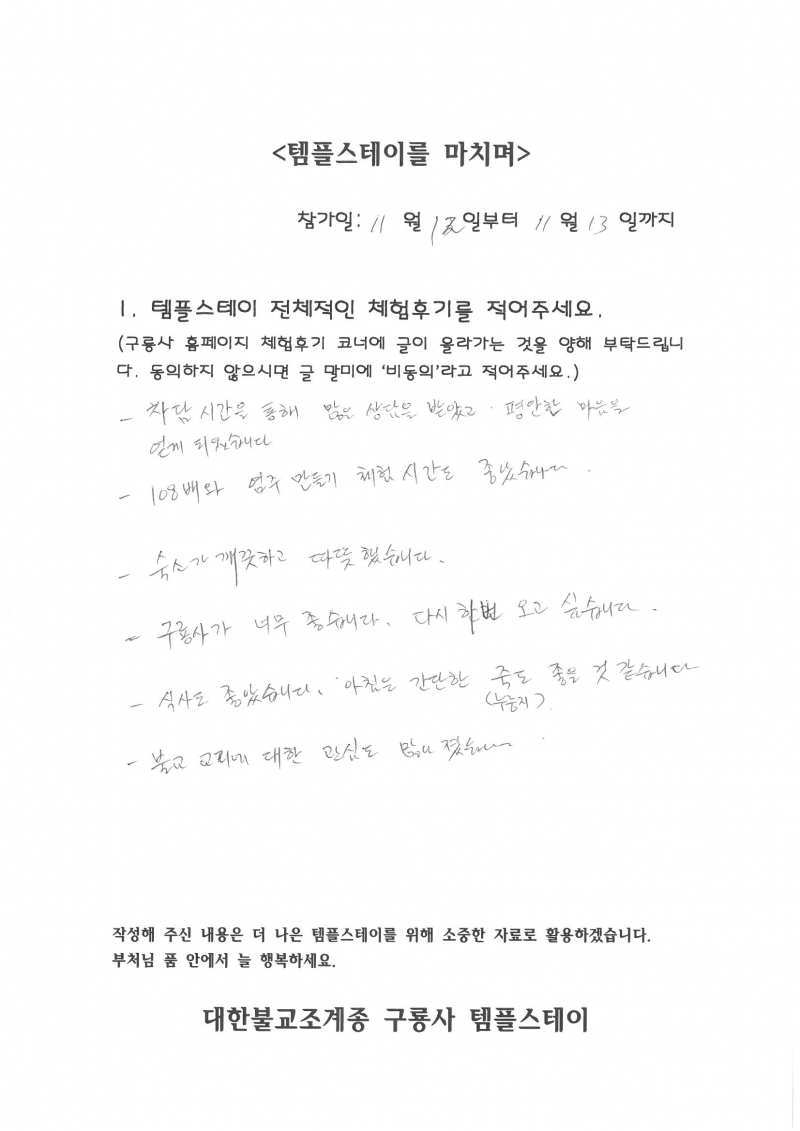 <템플스테이를 마치며>
참가일: 11 월 12일부터 11 월 13 일까지
1. 템플스테이 전체적인 체험후기를 적어주세요.
(구룡사 홈페이지 체험후기 코너에 글이 올라가는 것을 양해 부탁드립니
다. 동의하지 않으시면 글 말미에 '비동의'라고 적어주세요.)
- 차담 시간을 통해 많은 상담을 받았고 평안한 마음을
얻게 되었습니다
- 108배와 염주 만들기 체험 시간도 좋았습니다.
- 숙소가 깨끗하고 따뜻했습니다.
- 구룡사가 너무 좋습니다. 다시 한번 오고 싶습니다.
- 식사도 좋았습니다. 아침은 간단한 죽도 좋을 것 같습니다
(누룽지).
- 불교 교리에 대한 관심도 많아졌습니다
작성해 주신 내용은 더 나은 템플스테이를 위해 소중한 자료로 활용하겠습니다.
부처님 품 안에서 늘 행복하세요.
대한불교조계종 구룡사 템플스테이